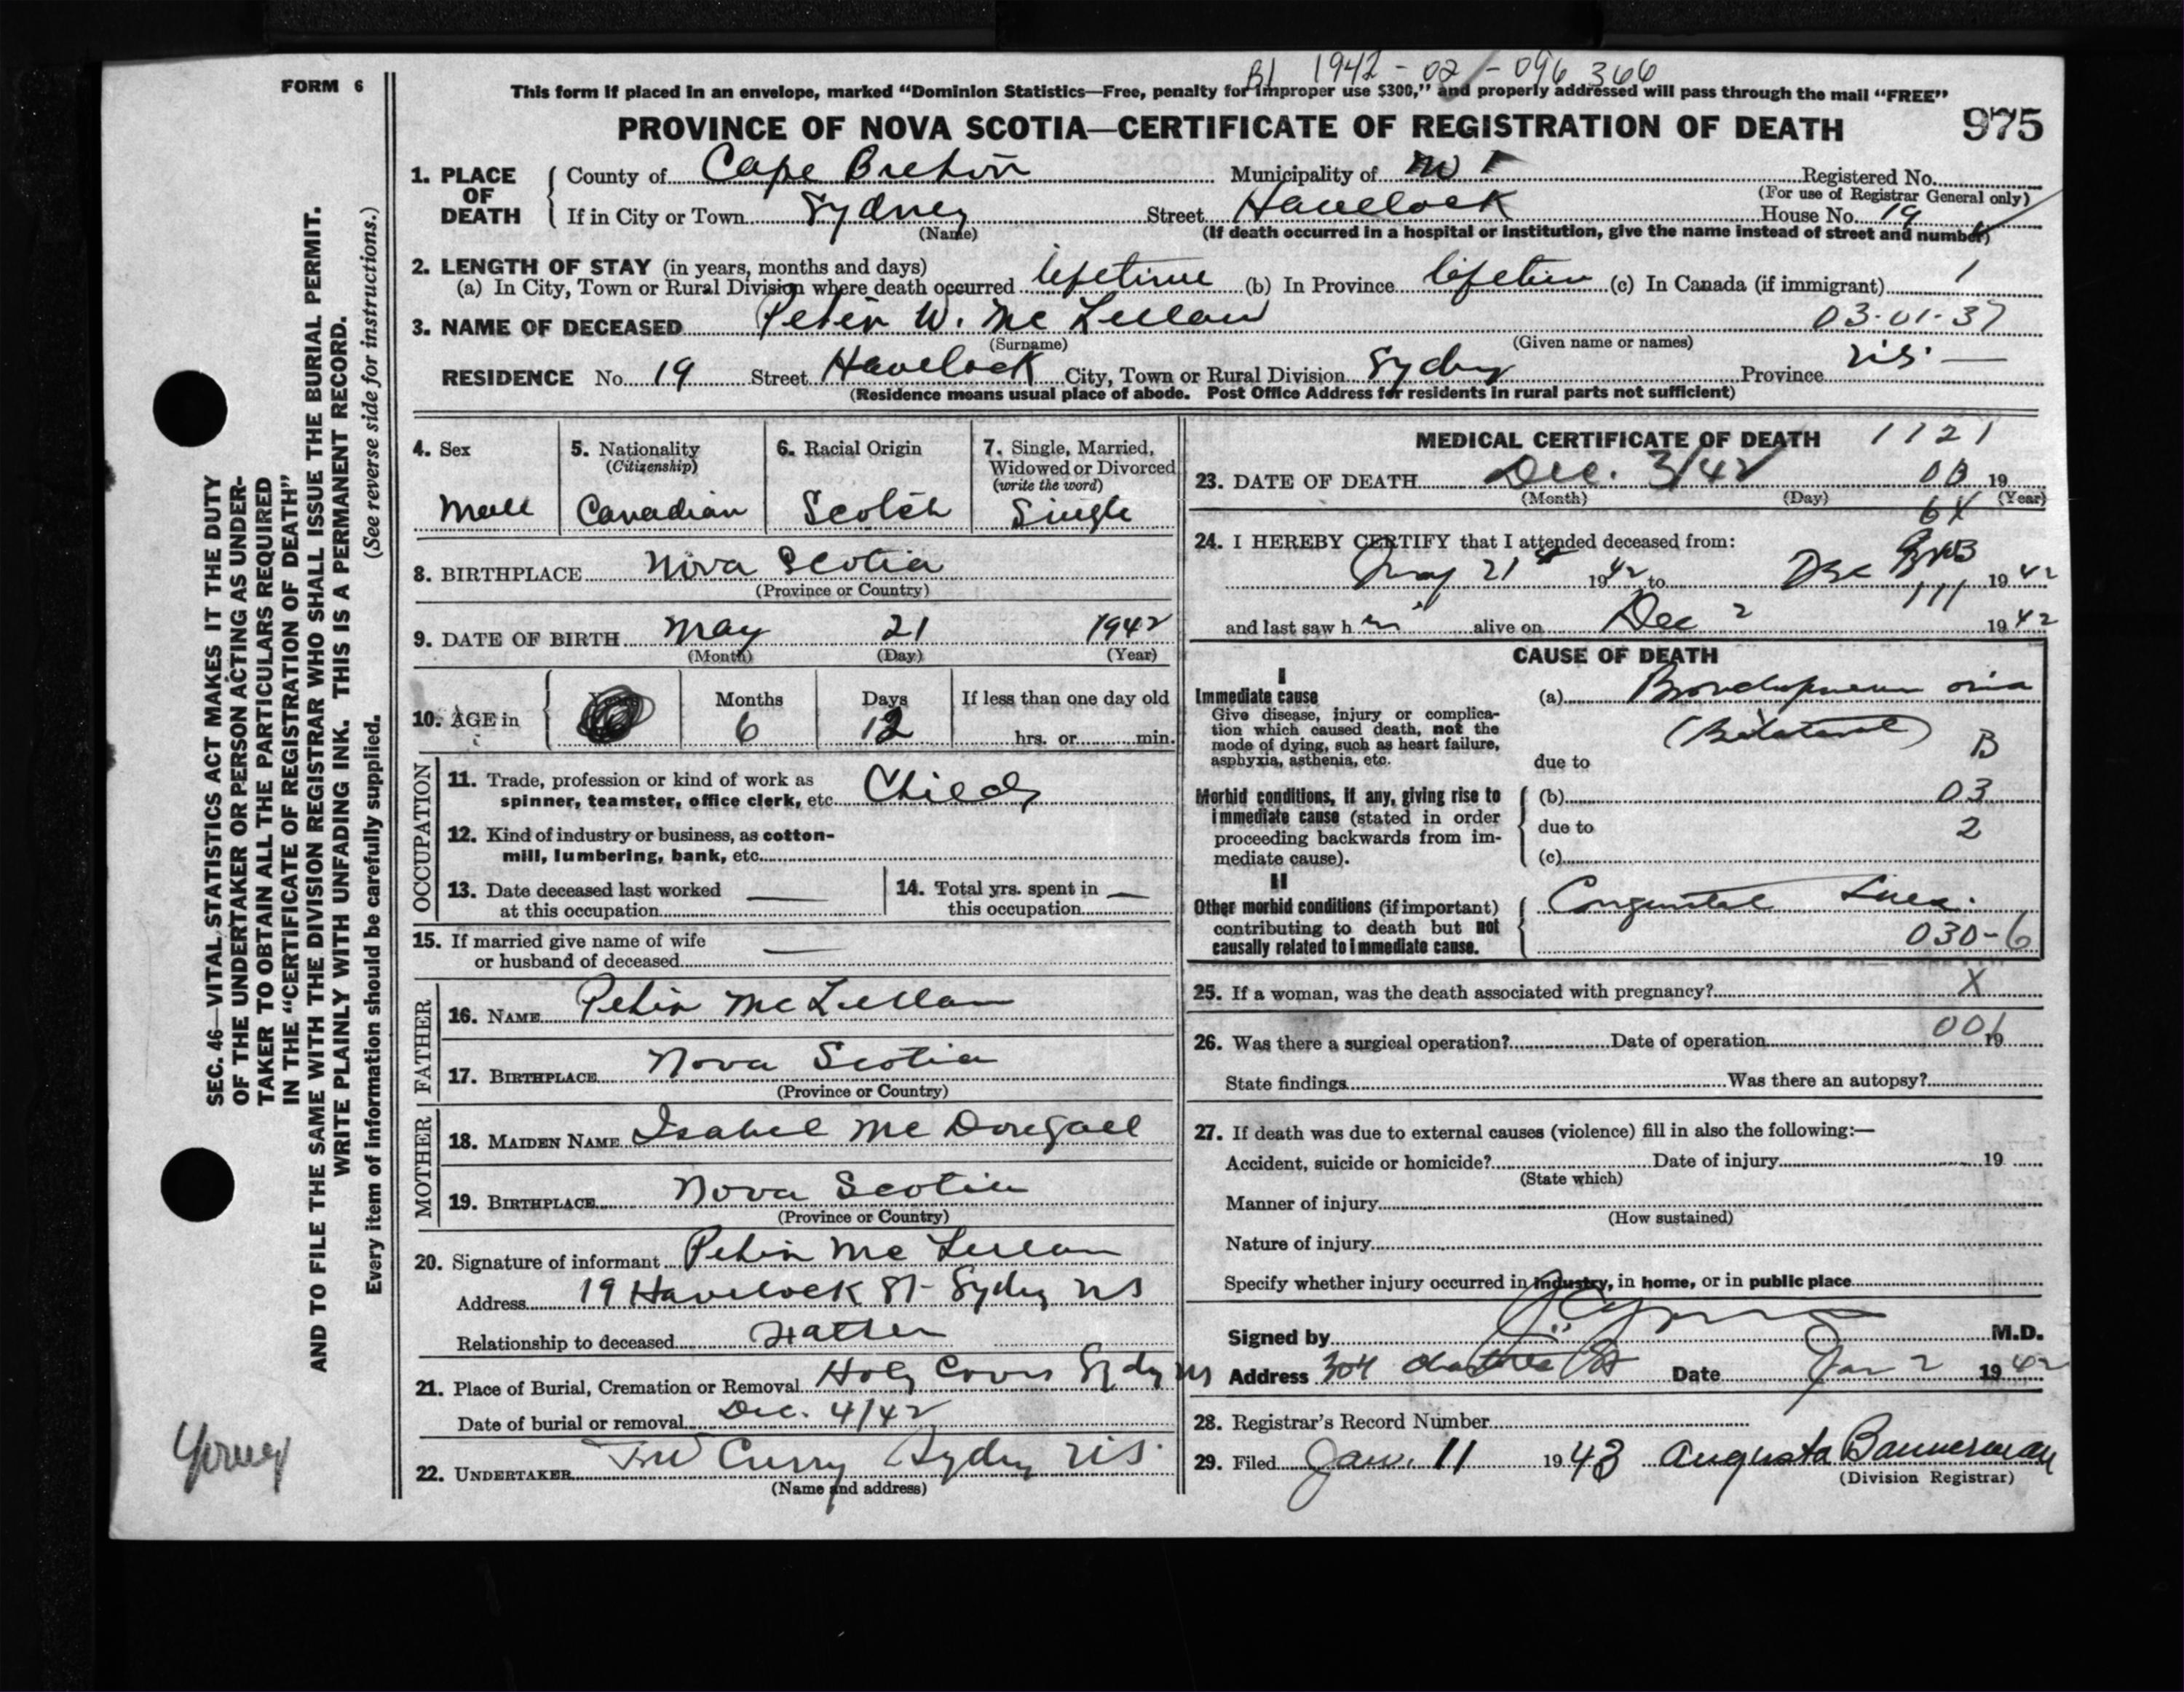 FORM 6
B1 1942-02-096366
This form if placed in an envelope, marked “Dominion Statistics—Free, penalty for improper use $300,” and properly addressed will pass through the mail “FREE”
PROVINCE OF NOVA SCOTIA—CERTIFICATE OF REGISTRATION OF DEATH 975
1. PLACE OF DEATH County of Cape Breton Municipality of Registered No.
(For use of Registrar General only)
If in City or Town Sydney Street Havelock House No. 19
(Name) (If death occurred in a hospital or institution, give the name instead of street and number)
2. LENGTH OF STAY (in years, months and days)
(a) In City, Town or Rural Division where death occurred lifetime (b) In Province lifetim (c) In Canada (if immigrant) 1
3. NAME OF DECEASED Peter W. Mc Lellan 03-01-37
(Surname) (Given name or names)
RESIDENCE No. 19 Street Havelock City, Town or Rural Division Sydney Province N.S. —
(Residence means usual place of abode. Post Office Address for residents in rural parts not sufficient)
4. Sex 5. Nationality (Citizenship) 6. Racial Origin 7. Single, Married, Widowed or Divorced (write the word)
Male Canadian Scotch Single
8. BIRTHPLACE Nova Scotia
(Province or Country)
9. DATE OF BIRTH May 21 1942
(Month) (Day) (Year)
10. AGE in Years Months Days If less than one day old
6 12 hrs. or min.
OCCUPATION
11. Trade, profession or kind of work as
spinner, teamster, office clerk, etc. Child
12. Kind of industry or business, as cotton-
mill, lumbering, bank, etc.
13. Date deceased last worked —
at this occupation
14. Total yrs. spent in —
this occupation
15. If married give name of wife —
or husband of deceased
FATHER
16. NAME Peter Mc Lellan
17. BIRTHPLACE Nova Scotia
(Province or Country)
MOTHER
18. MAIDEN NAME Isabel Mc Dougall
19. BIRTHPLACE Nova Scotia
(Province or Country)
20. Signature of informant Peter Mc Lellan
Address 19 Havelock St Sydney NS
Relationship to deceased Father
21. Place of Burial, Cremation or Removal Holy Cross Sydney NS
Date of burial or removal Dec. 4/42
22. UNDERTAKER Curry Sydney N.S.
(Name and address)
MEDICAL CERTIFICATE OF DEATH 1121
23. DATE OF DEATH Dec. 3/42 03 19
(Month) (Day) (Year)
6X
24. I HEREBY CERTIFY that I attended deceased from:
May 21st 1942 to Dec 1942
111
and last saw h im alive on Dec 2 1942
CAUSE OF DEATH
I
Immediate cause
Give disease, injury or complica-
tion which caused death, not the
mode of dying, such as heart failure,
asphyxia, asthenia, etc.
(a) Bronchopneumonia
(Bilateral) B
due to
Morbid conditions, if any, giving rise to
immediate cause (stated in order
proceeding backwards from im-
mediate cause).
(b) 03
due to 2
(c)
II
Other morbid conditions (if important)
contributing to death but not
causally related to immediate cause.
Congenital Lues.
030-6
25. If a woman, was the death associated with pregnancy? X
26. Was there a surgical operation? Date of operation 001 19
State findings Was there an autopsy?
27. If death was due to external causes (violence) fill in also the following:—
Accident, suicide or homicide? Date of injury 19
(State which)
Manner of injury
(How sustained)
Nature of injury
Specify whether injury occurred in industry, in home, or in public place
Signed by M.D.
Address 304 Charlotte St Date Jan 2 1942
28. Registrar's Record Number
29. Filed Jan. 11 1943 Augusta Bannerman
(Division Registrar)
SEC. 46—VITAL STATISTICS ACT MAKES IT THE DUTY
OF THE UNDERTAKER OR PERSON ACTING AS UNDER-
TAKER TO OBTAIN ALL THE PARTICULARS REQUIRED
IN THE “CERTIFICATE OF REGISTRATION OF DEATH”
AND TO FILE THE SAME WITH THE DIVISION REGISTRAR WHO SHALL ISSUE THE BURIAL PERMIT.
WRITE PLAINLY WITH UNFADING INK. THIS IS A PERMANENT RECORD.
Every item of information should be carefully supplied. (See reverse side for instructions.)